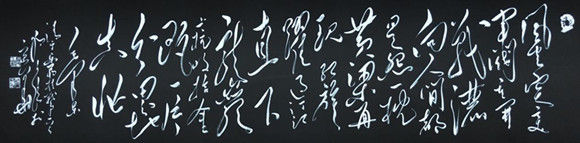 風雲突變
軍閥重開
戰灑
向人間都
是怨一枕
黄粱再
現紅旗
躍過汀江
直下
龍巖
上杭收拾金
甌一片
分田分地
真忙